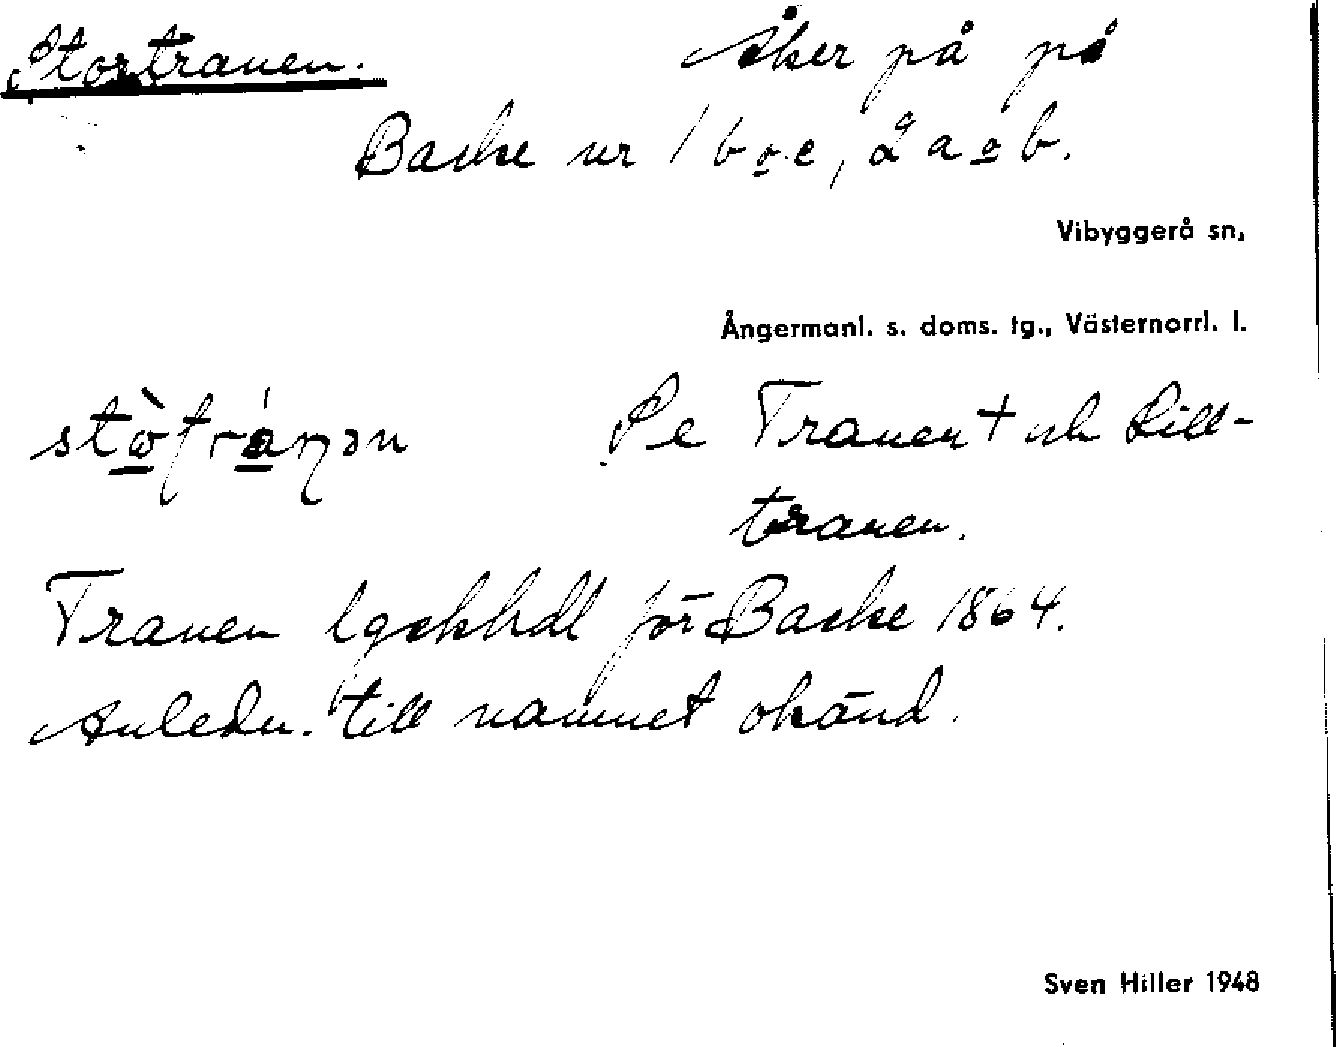 Stortranen. Åker på på
Backe nr 1 b o. c, 2 a o b.
Vibyggerå sn,
Ångermanl. s. doms. tg., Västernorrl. l.
Se Tranen + och Lill-
tranen.
Tranen lgskhdl för Backe 1864.
Anledn. till namnet okänd.
Sven Hiller 1948